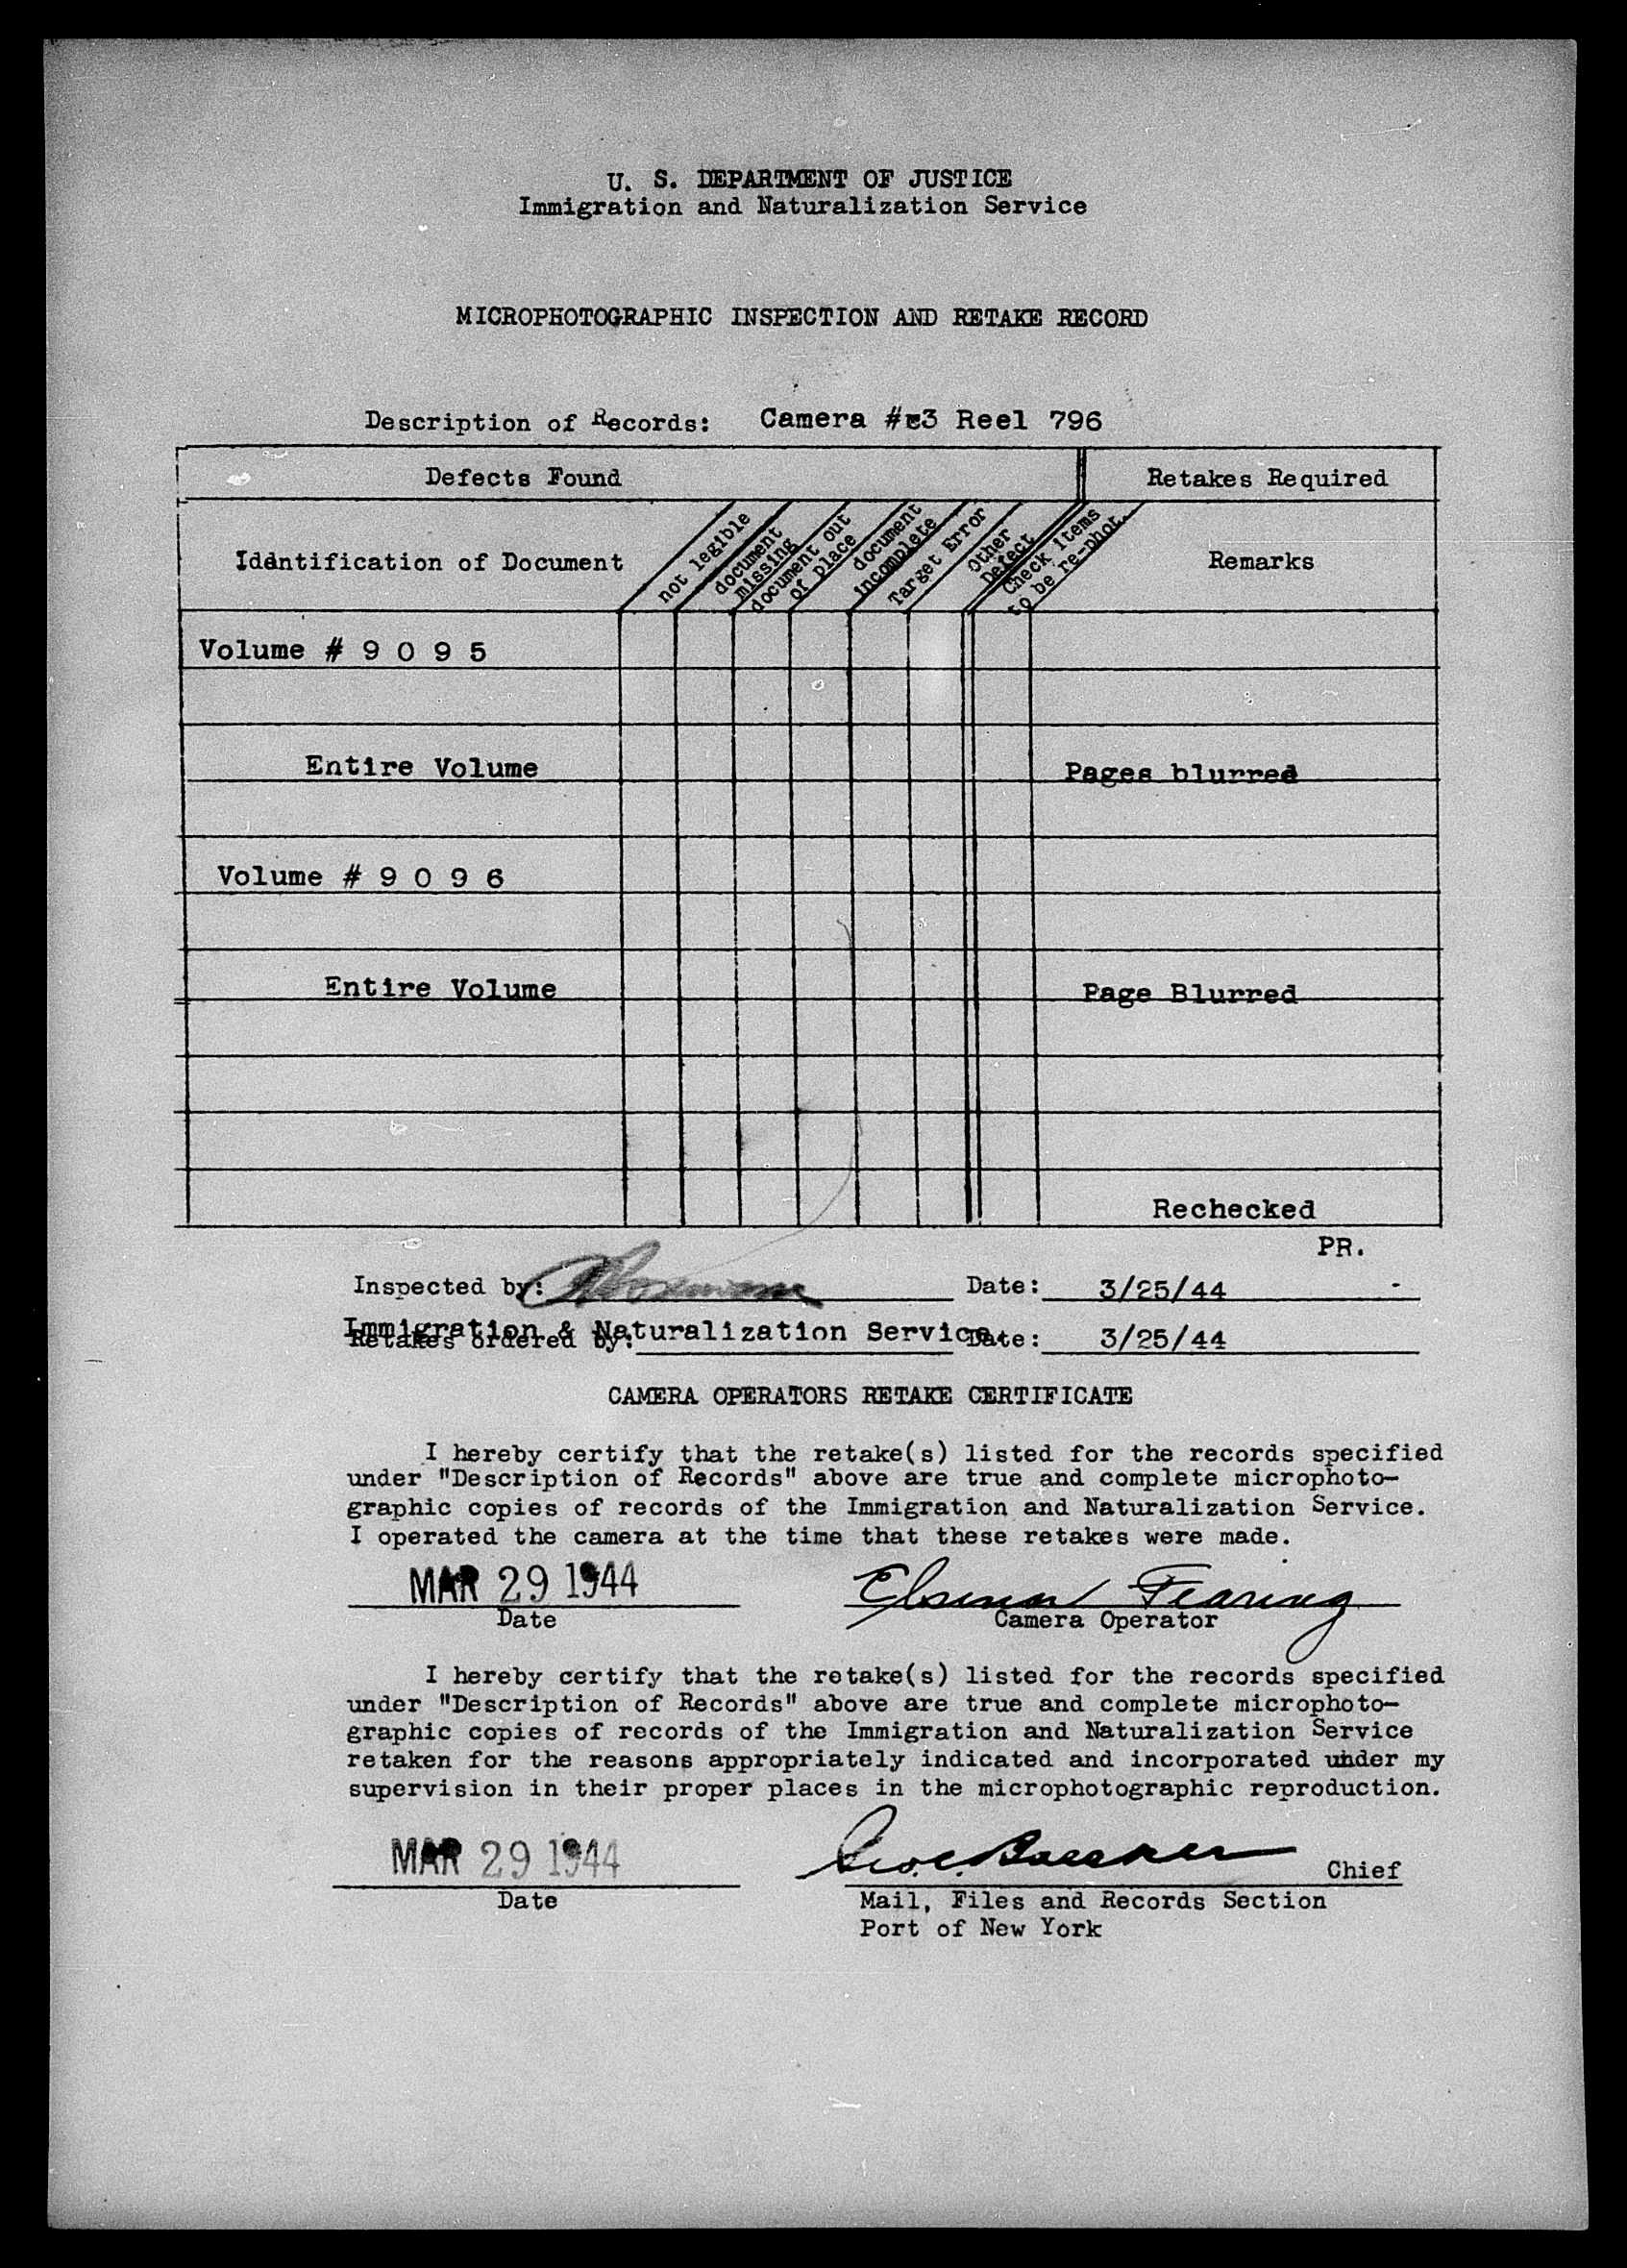 U. S. DEPARTMENT OF JUSTICE
Immigration and Naturalization Service
MICROPHOTOGRAPHIC INSPECTION AND RETAKE RECORD
Description of Records: Camera #3 Reel 796
Defects Found Retakes Required
Iddntification of Document
not legible
document missing
document out of place
document incomplete
Target Error
Other Defect
Check Items to be re-phot.
Remarks
Volume # 9 0 9 5
Entire Volume Pages blurred
Volume # 9 0 9 6
Entire Volume Page Blurred
Rechecked
PR.
Inspected by: Date: 3/25/44 -
Immigration & Naturalization Service
Retakes ordered by: Date: 3/25/44
CAMERA OPERATORS RETAKE CERTIFICATE
I hereby certify that the retake(s) listed for the records specified
under "Description of Records" above are true and complete microphoto-
graphic copies of records of the Immigration and Naturalization Service.
I operated the camera at the time that these retakes were made.
MAR 29 1944 Fearing
Date Camera Operator
I hereby certify that the retake(s) listed for the records specified
under "Description of Records" above are true and complete microphoto-
graphic copies of records of the Immigration and Naturalization Service
retaken for the reasons appropriately indicated and incorporated under my
supervision in their proper places in the microphotographic reproduction.
MAR 29 1944 Chief
Date Mail, Files and Records Section
Port of New York